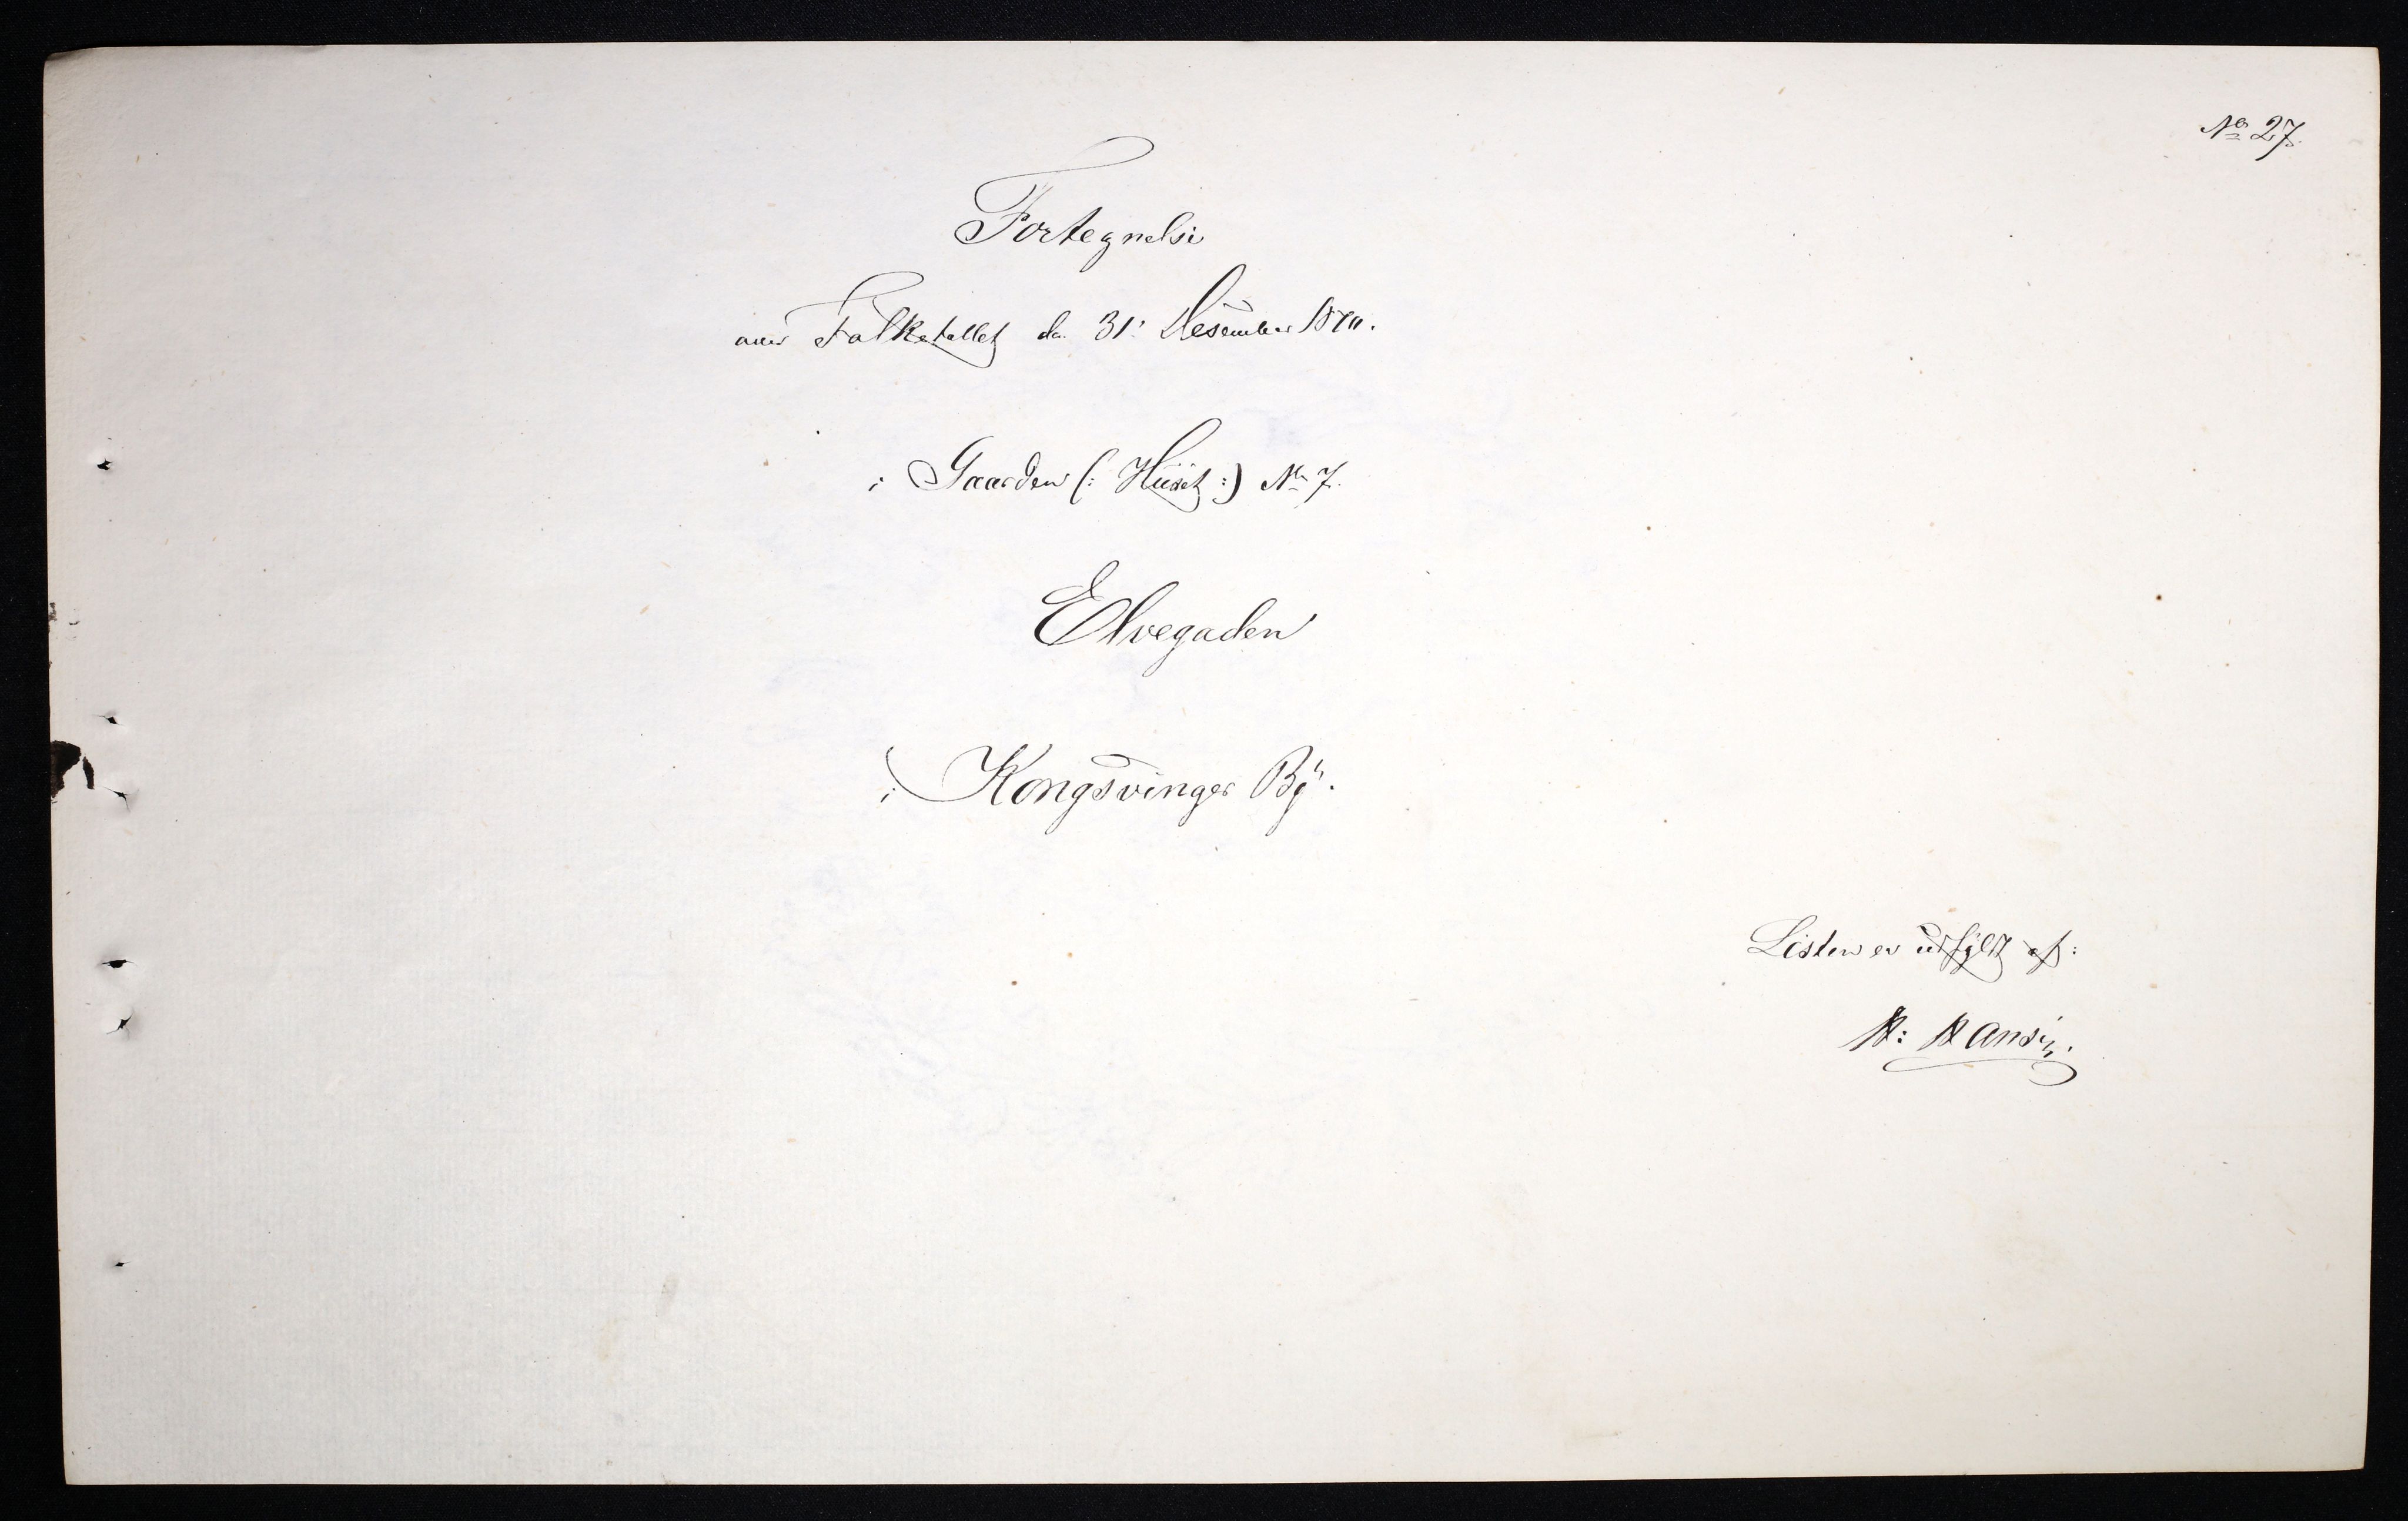 No 27.
Fortegnelse
over Folketallet den 31' Desember 1870.
i Gaarden (: Huset :) No 7.
Elvegaden
i Kongsvinger By.
Listen er udfyldt af:
H: Hansen.